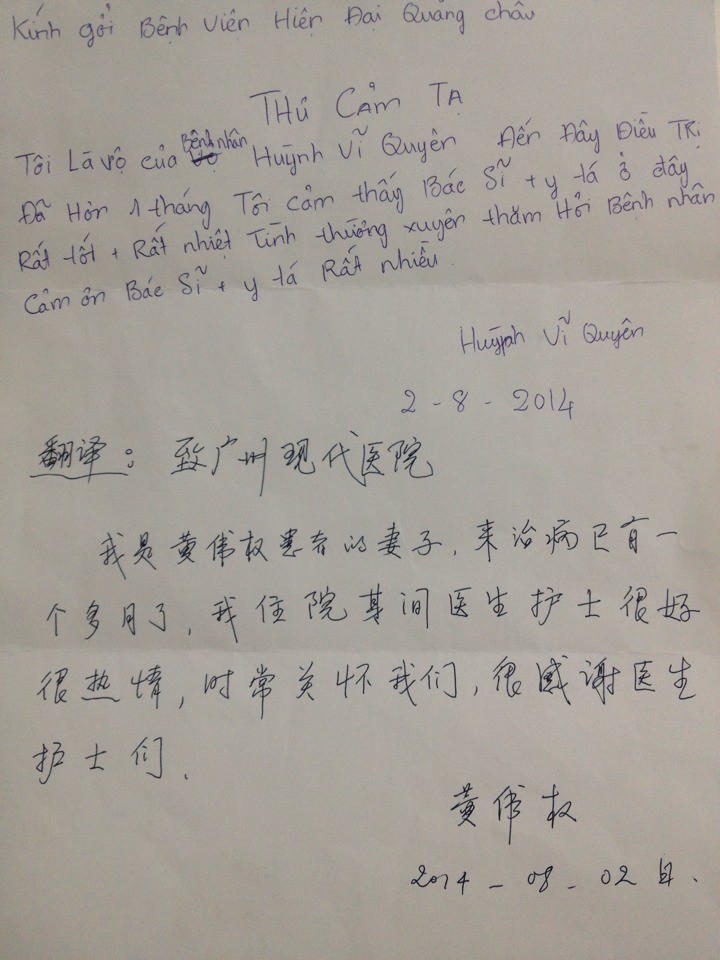 Kính gởi Bệnh Viện Hiện Đại Quảng châu
THƯ CẢM TẠ
Tôi Là vợ của Bệnh nhân Huỳnh Vĩ Quyên Đến Đây Điều Trị
Đã Hơn 1 tháng Tôi cảm thấy Bác Sĩ + y tá ở đây
Rất tốt + Rất nhiệt Tình thường xuyên thăm Hỏi Bệnh nhân
Cảm ơn Bác Sĩ + y tá Rất nhiều.
Huỳnh Vĩ Quyên
2 - 8 - 2014
翻译: 致广州现代医院
我是黄伟权患者的妻子, 来治病已有一
个多月了, 我住院其间医生护士很好
很热情, 时常关怀我们, 很感谢医生
护士们.
黄伟权
2014 - 08 - 02日.